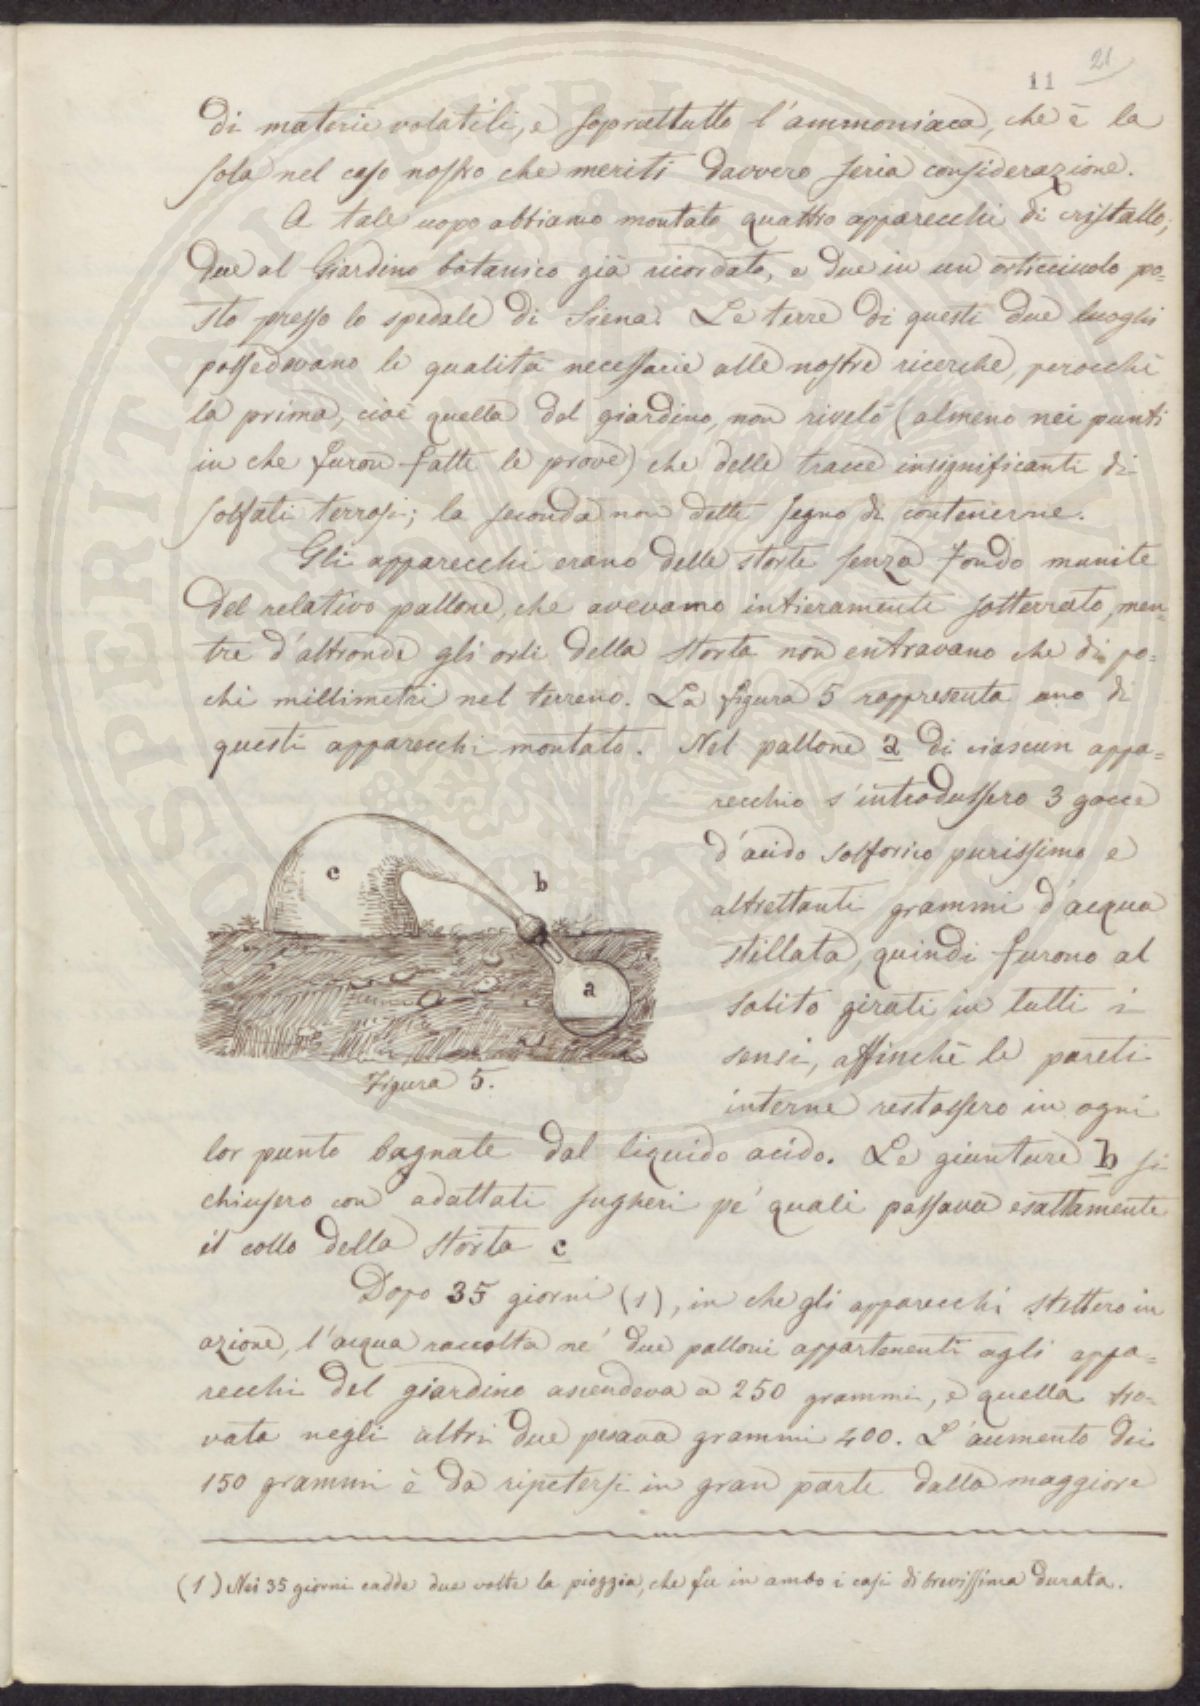 21
11
di materie volatili, e soprattutto l'ammoniaca, che è la
sola nel caso nostro che meriti davvero seria considerazione.
A tale uopo abbiamo montato quattro apparecchi di cristallo,
due al Giardino botanico già ricordato, e due in un orticciuolo po=
sto presso lo spedale di Siena. Le terre di questi due luoghi
possedevano le qualità necessarie alle nostre ricerche, perocchè
la prima, cioè quella del giardino, non rivelò (almeno nei punti
in che furon fatte le prove) che delle tracce insignificanti di
solfati terrosi; la seconda non dette segno di contenerne.
Gli apparecchi erano delle storte senza fondo munite
del relativo pallone, che avevamo intieramente sotterrato, men=
tre d'altronde gli orli della storta non entravano che di po=
chi millimetri nel terreno. La figura 5 rappresenta uno di
questi apparecchi montato. Nel pallone a di ciascun appa=
recchio s'introdussero 3 gocce
d'acido solforico purissimo e
altrettanti grammi d'acqua
stillata, quindi furono al
solito girati in tutti i
sensi, affinchè le pareti
interne restassero in ogni
c
b
a
Figura 5.
lor punto bagnate dal liquido acido. Le giunture b si
chiusero con adattati sugheri pe' quali passava esattamente
il collo della storta c
Dopo 35 giorni (1), in che gli apparecchi stettero in
azione, l'acqua raccolta ne' due palloni appartenenti agli appa=
recchi del giardino ascendeva a 250 grammi, e quella tro=
vata negli altri due pesava grammi 400. L'aumento dei
150 grammi è da ripetersi in gran parte dalla maggiore
(1) Nei 35 giorni cadde due volte la pioggia, che fu in ambo i casi di brevissima durata.